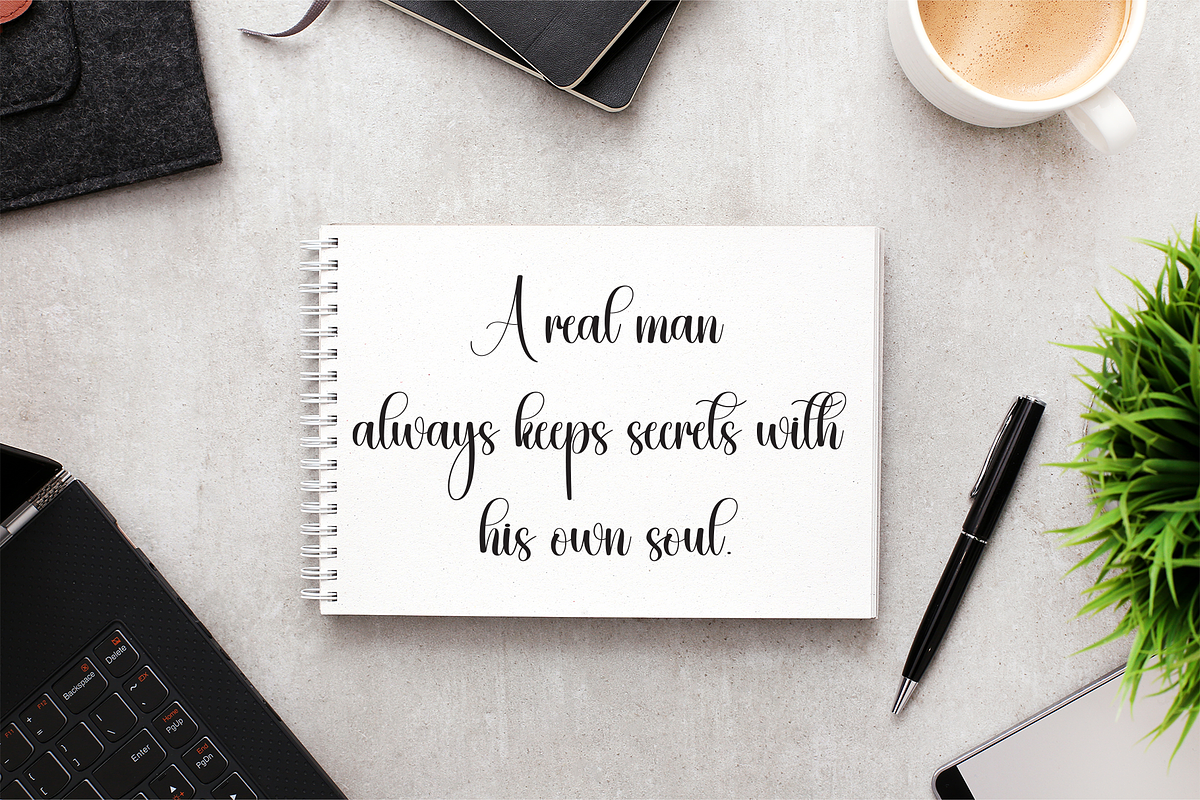 A real man
always keeps secrets with
his own soul.
Delete
Backspace
F12
F11
+
=
~
Home
PgUp
}
]
{
[
|
\
Enter
End
PgDn